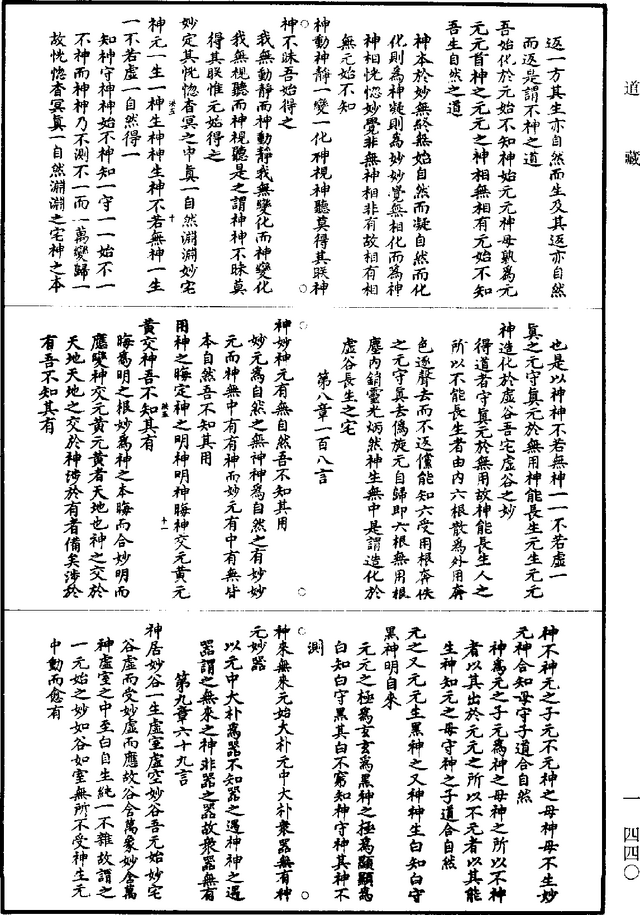 道藏
返一方其生亦自然而生及其返亦自然
而返是謂不神之道
吾始化於元始不知神始元元神母孰為元
元元首神之元元之神相無相有元始不知
吾生自然之道
神本於妙無終無始自然而凝自然而化
化則為神凝則為妙妙覺無相化而為神
神相恍惚妙覺非無神相非有故相有相
無元始不知
神動神靜一變一化神視神聽莫得其朕神
神不昧吾始得之
我無動靜而神動靜我無變化而神變化
我無視聽而神視聽是之謂神神不昧莫
得其朕惟元始得之
妙定其恍惚杳冥之中真一自然淵淵妙宅
神元一生一神生神神生神不若無神一生
一不若虛一自然得一
知神守神神始不神知一守一一始不一
不神而神神乃不測不一而一萬變歸一
故恍惚杳冥真一自然淵淵之宅神之本
也是以神神不若無神一一不若虛一
真之元守真元於無用神能長生元生元元
神造化於虛谷吾宅虛谷之妙
得道者守真元於無用故神能長生人之
所以不能長生者由內六根散為外用奔
色逐聲去而不返儻能知六受用根奔佚
之元守真去偽旋元自歸即六根無用根
塵內銷靈光炳然神生無中是謂造化於
虛谷長生之宅
第八章一百八言
神妙神元有無自然吾不知其用
妙元為自然之無神神為自然之有妙妙
元而神無中有有神而妙元有中有無皆
本自然吾不知其用
用神之晦定神之明神明神晦神交元黃元
黃交神吾不知其有
晦為明之根妙為神之本晦而合妙明而
應變神交元黃元黃者天地也神之交於
天地天地之交於神涉於有者備矣涉於
有吾不知其有
神不神元之子元不元神之母神母不生妙
元神合知母守子道合自然
神為元之子元為神之母神之所以不神
者以其出於元元之所以不元者以其能
生神知元之母守神之子道合自然
元之又元元生黑神之又神神生白知白守
黑神明自來
元元之極為玄玄為黑神之極為顯顯為
白知白守黑其白不窮知神守神其神不
測
神來無來元始大朴元中大朴眾器無有神
元妙器
以元中大朴為器不知器之遇神神之遇
器謂之無來之神非器之器故眾器無有
第九章六十九言
神居妙谷一生虛室虛空妙谷吾元始妙宅
谷虛而受妙虛而應故谷含萬象妙含萬
神虛室之中至白自生純一不雜故謂之
一元始之妙如谷如室無所不受神生元
中動而愈有
一四四〇